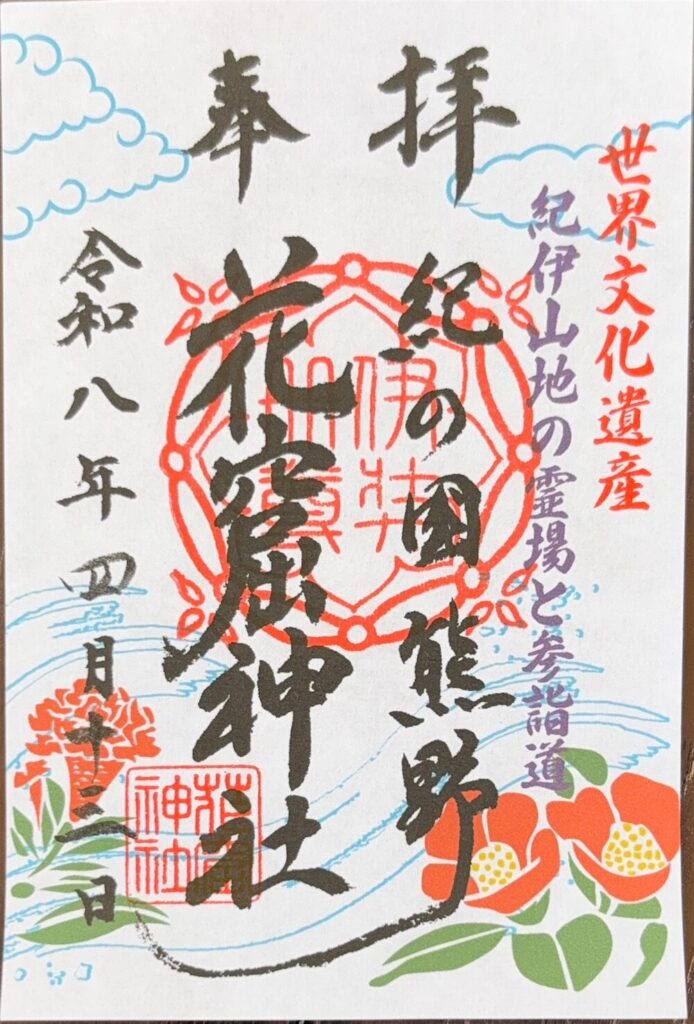 世界文化遺産
紀伊山地の霊場と参詣道
奉拝
紀の国熊野
花窟神社
令和八年四月十三日
伊弉
冊尊
花窟
神社